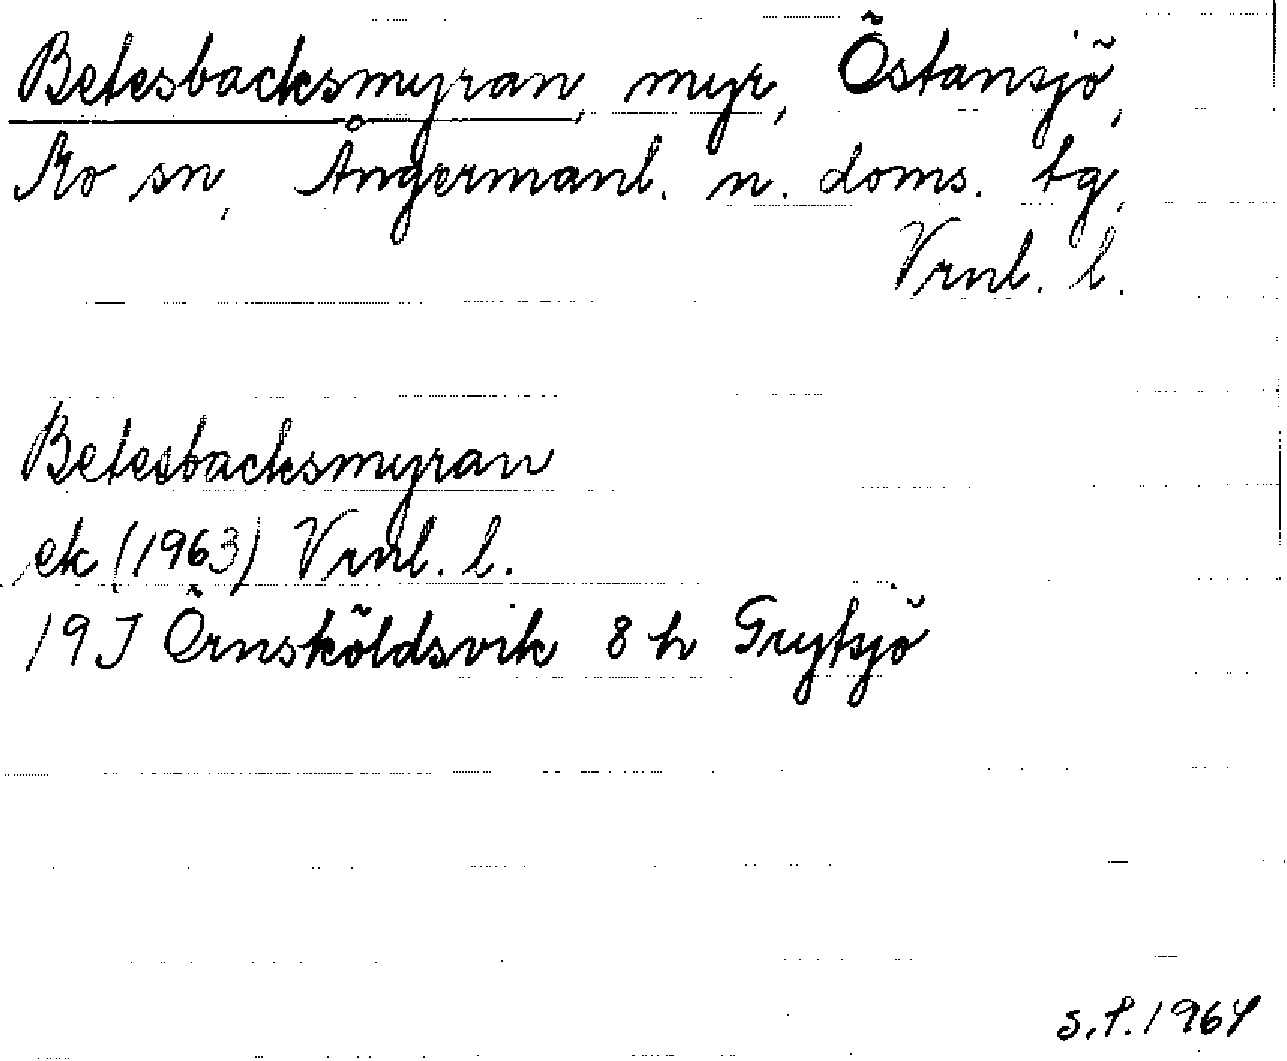 Betesbacksmyran, myr, Östansjö,
Mo sn, Ångermanl. n. doms. tg,
Vrnl. l.
Betesbacksmyran
ek (1963) Vrnl. l.
19J Örnsköldsvik 8 h Grytsjö
s.f. 1964